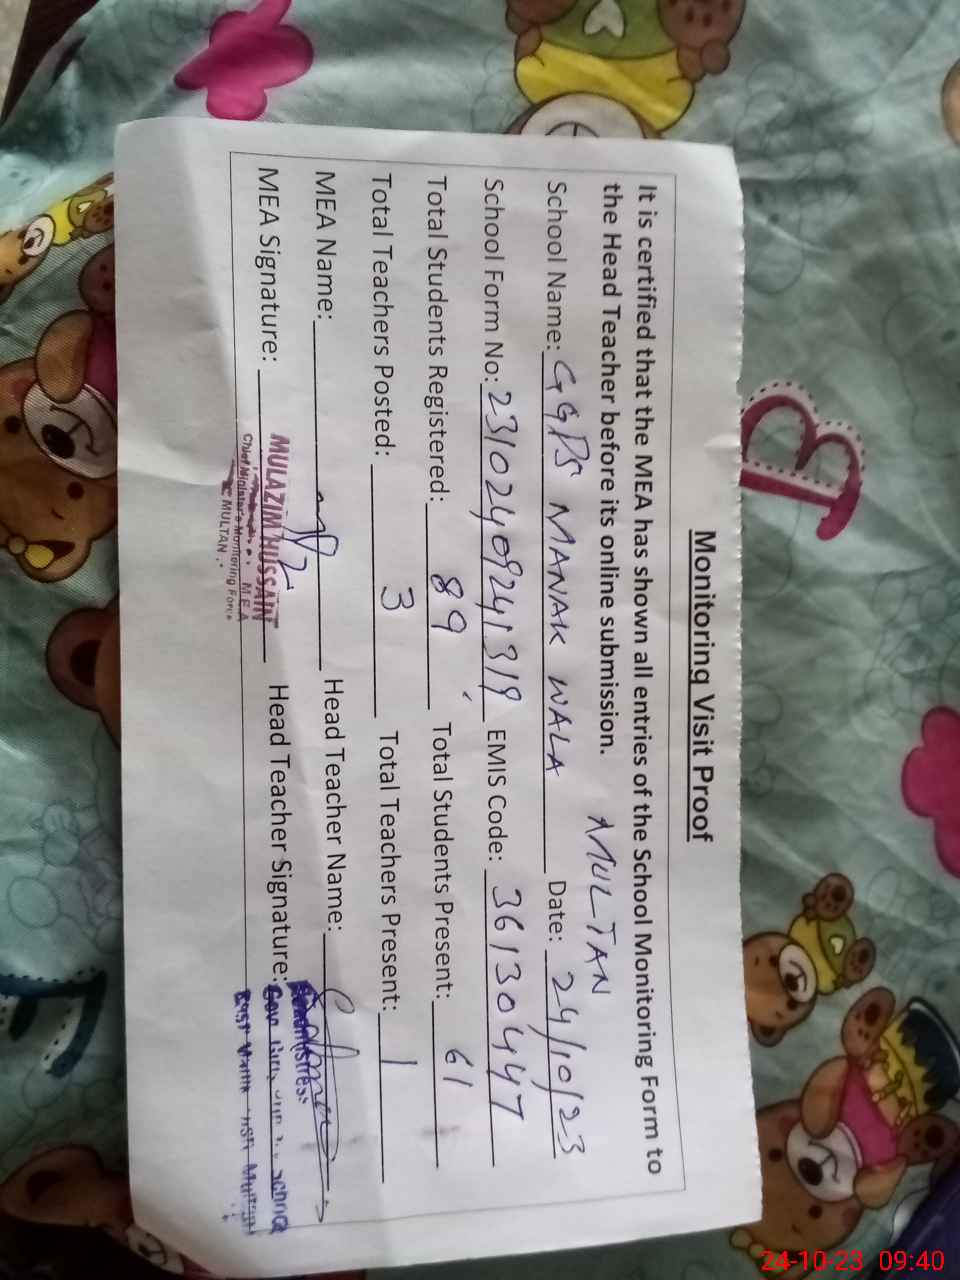 Monitoring Visit Proof
It is certified that the MEA has shown all entries of the School Monitoring Form to
the Head Teacher before its online submission.
MULTAN
School Name: GGPS MANAK WALA Date: 24/10/23
School Form No: 23102409241319 EMIS Code: 36130447
Total Students Registered: 89 Total Students Present: 61
Total Teachers Posted: 3 Total Teachers Present: 1
MEA Name: Head Teacher Name:
MEA Signature: Head Teacher Signature:
MULAZIM HUSSAIN
M.E.A
Chief Minister's Monitoring Force
MULTAN
Headmistress
School
Multan
24-10-23 09:40